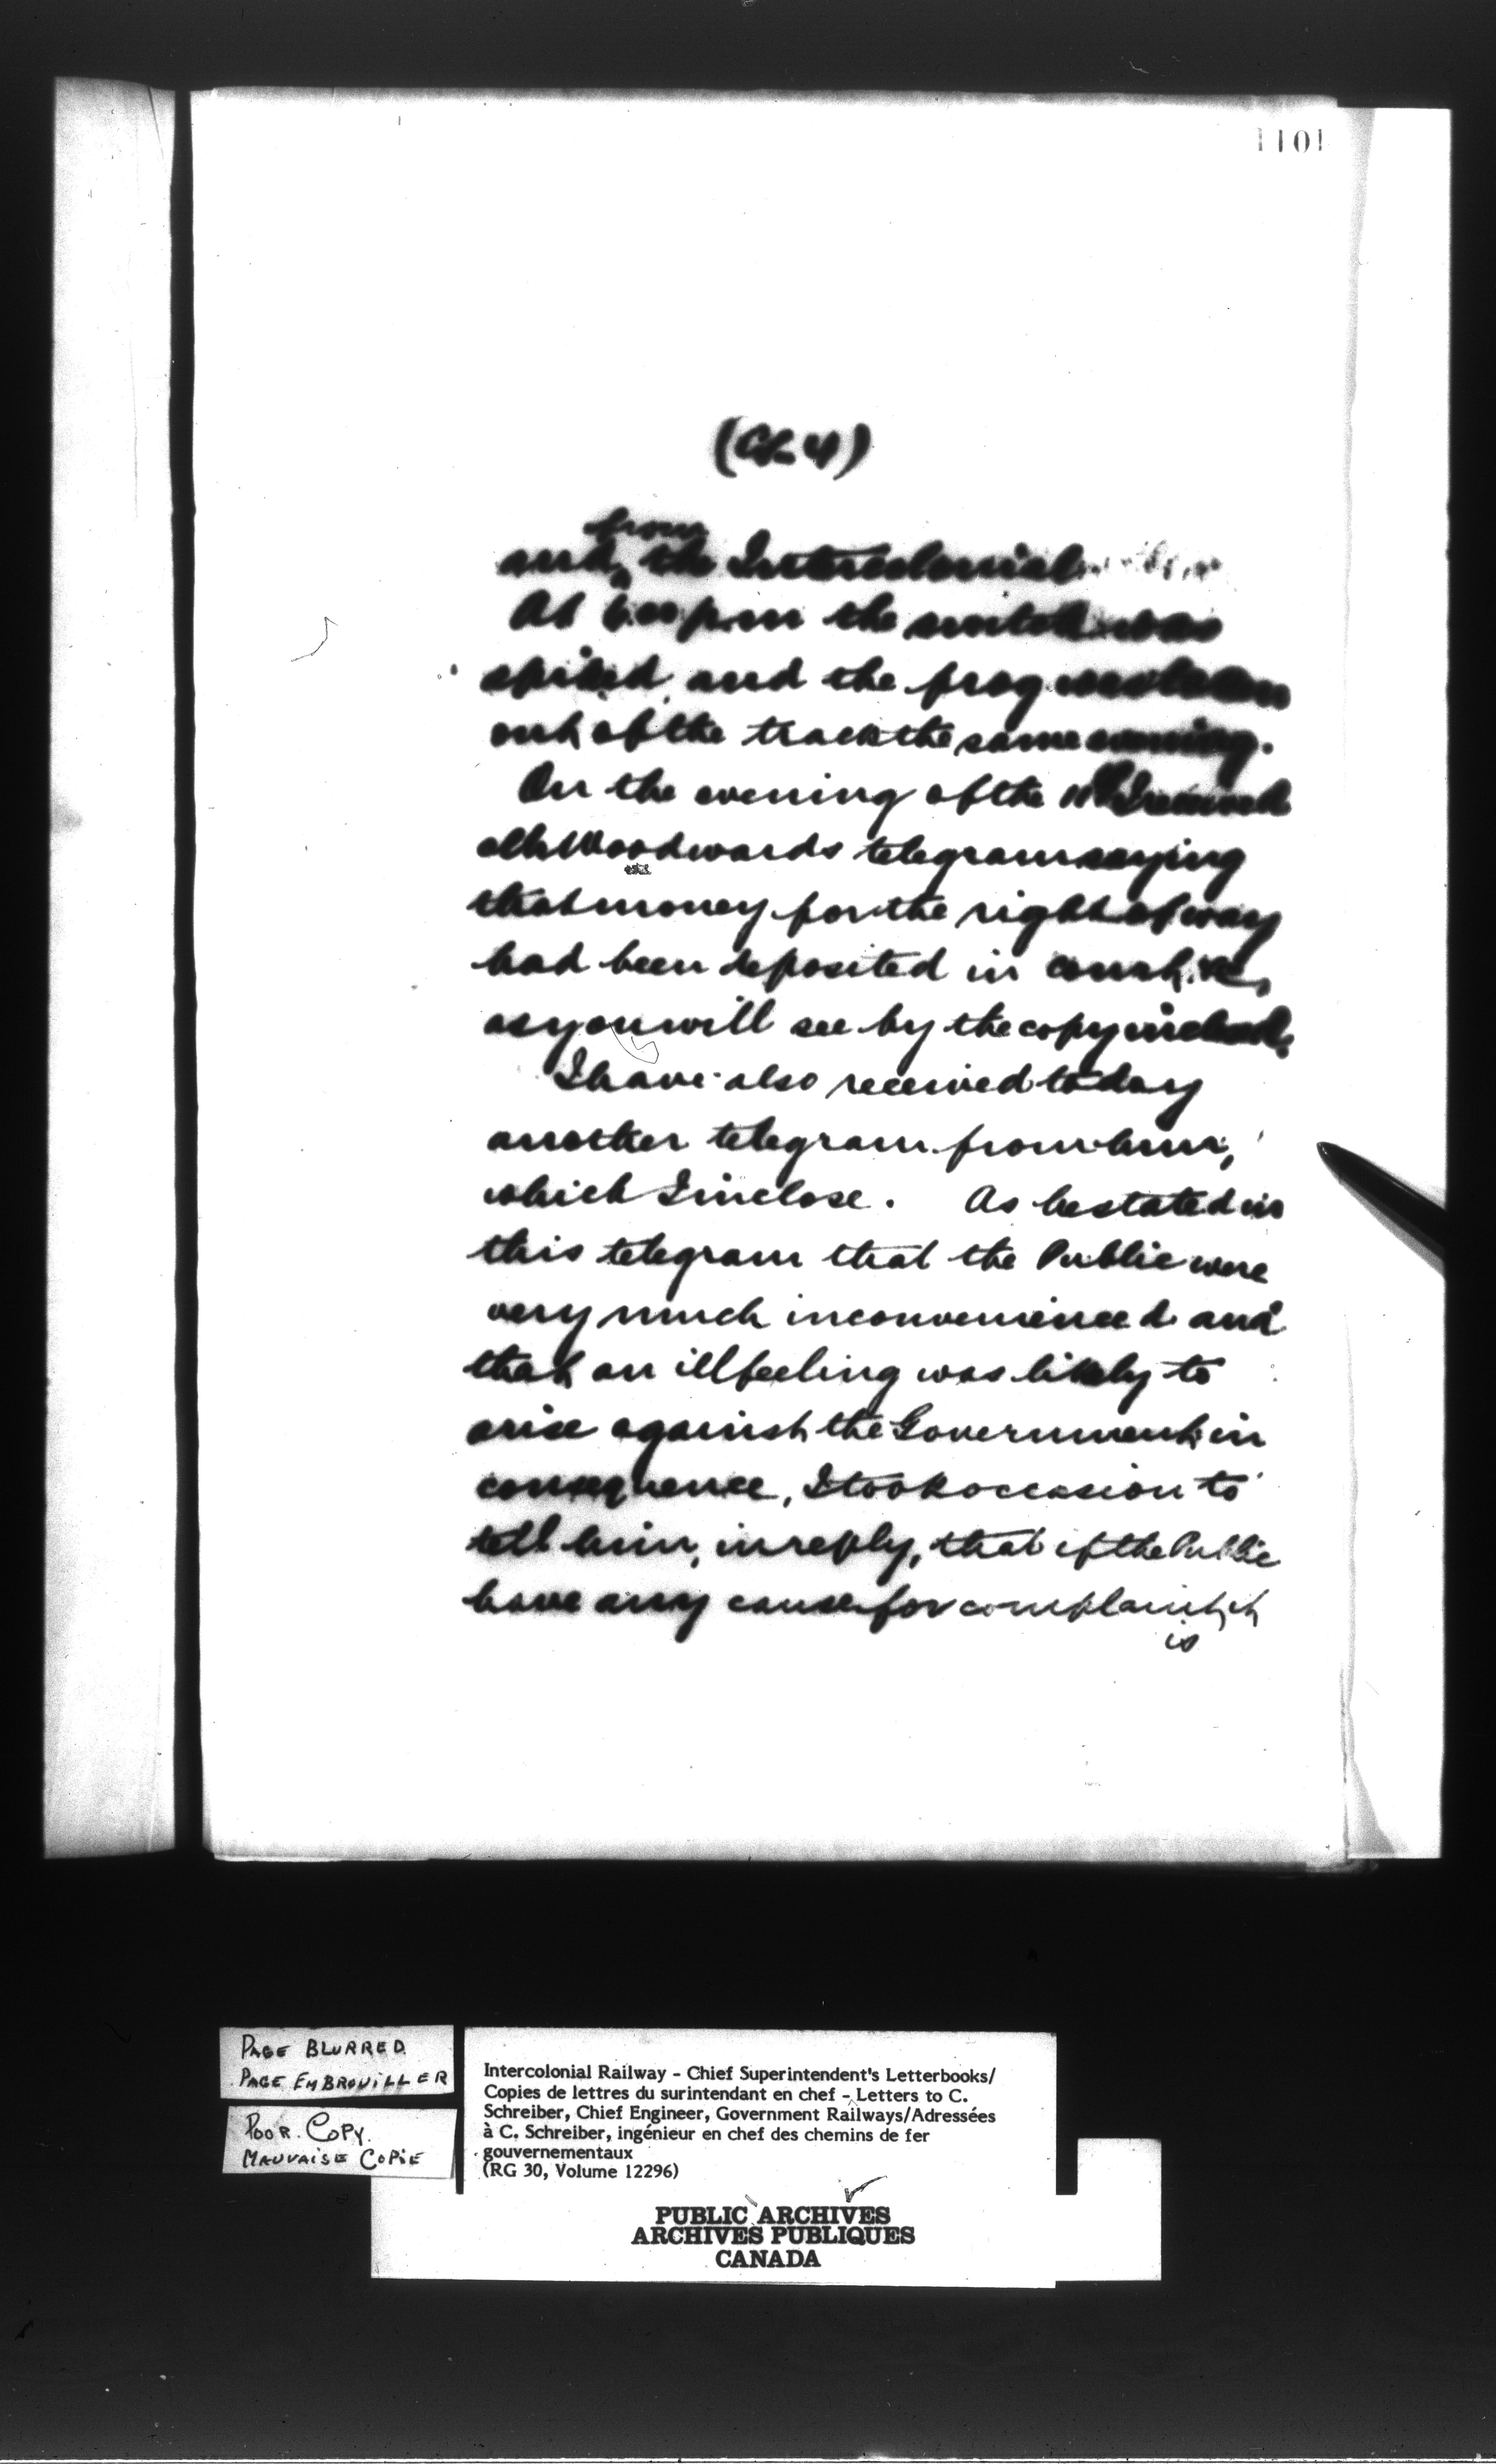 1101
from
and the Intercolonial
At 6.00 p.m the switch was
spiked and the frog was taken
out of the track the same evening.
On the evening of the 11th I received
Mr Woodwards telegram saying
that money for the right of way
had been deposited in court &c,
as you will see by the copy inclosed.
I have also received today
another telegram from him,
which I inclose. As he stated in
this telegram that the Public were
very much inconvenienced and
that an ill feeling was likely to
arise against the Government in
consequence, I took occasion to
tell him, in reply, that if the Public
have any cause for complaint, it
is
PAGE BLURRED
PAGE EMBROUILLER
POOR COPY.
MAUVAISE COPIE
Intercolonial Railway - Chief Superintendent's Letterbooks/
Copies de lettres du surintendant en chef - Letters to C.
Schreiber, Chief Engineer, Government Railways/Adressées
à C. Schreiber, ingénieur en chef des chemins de fer
gouvernementaux
(RG 30, Volume 12296)
PUBLIC ARCHIVES
ARCHIVES PUBLIQUES
CANADA